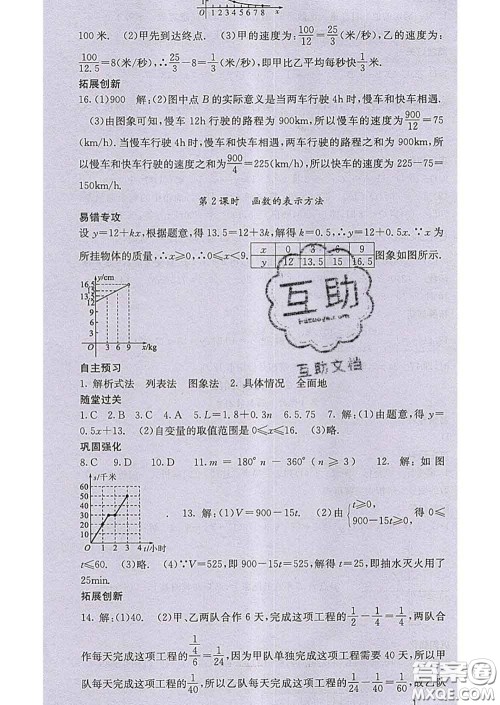 0 1 2 3 4 5 6 7 8 x
100米. (2)甲先到达终点. (3)甲的速度为:100/12=25/3(米/秒),乙的速度为:
100/12.5=8(米/秒),∴25/3-8=1/3(米/秒),即甲比乙平均每秒快1/3米.
拓展创新
16.(1)900 解:(2)图中点B的实际意义是当两车行驶4h时,慢车和快车相遇.
(3)由图象可知,慢车12h行驶的路程为900km,所以慢车的速度为900/12=75
(km/h).当慢车行驶4h时,慢车和快车相遇,两车行驶的路程之和为900km,所
以慢车和快车行驶的速度之和为900/4=225(km/h),所以快车的速度为225-75=
150km/h.
第2课时 函数的表示方法
易错专攻
设y=12+kx,根据题意,得13.5=12+3k,解得k=0.5,∴y=12+0.5x.∵x为
所挂物体的质量,∴x≥0,∴0≤x≤9. x 0 3 6 9 图象如图所示.
y 12 13.5 15 16.5
y/cm
16.5
15
13.5
12
O 3 6 9 x/kg
互助
互助文档
自主预习
1.解析式法 列表法 图象法 2.具体情况 全面地
随堂过关
1.C 2.B 3.C 4.A 5.L=1.8+0.3n 6.5.75 7.解:(1)由题意,得y=
0.5x+13. (2)自变量的取值范围是0≤x≤16. (3)略.
巩固强化
8.C 9.D 10.D 11.m=180°n-360°(n≥3) 12.解:如图
s/千米
60
50
40
30
20
10
O 1 2 3 4 t/小时
. 13.解:(1)V=900-15t. (2)由{t≥0, 900-15t≥0, 得0≤
t≤60. (3)略. (4)∵V=525,即900-15t=525,解得t=25,即抽水灭火用了
25min.
拓展创新
14.解:(1)40. (2)甲、乙两队合作6天,完成这项工程的1/2-1/4=1/4,两队合
作每天完成这项工程的1/4/6=1/24,因为甲队单独完成这项工程需要40天,所以甲
队每天完成这项工程的1/40,所以乙队每天完成这项工程的1/24-1/40=1/60,故乙队
答案圈
MXQE.COM